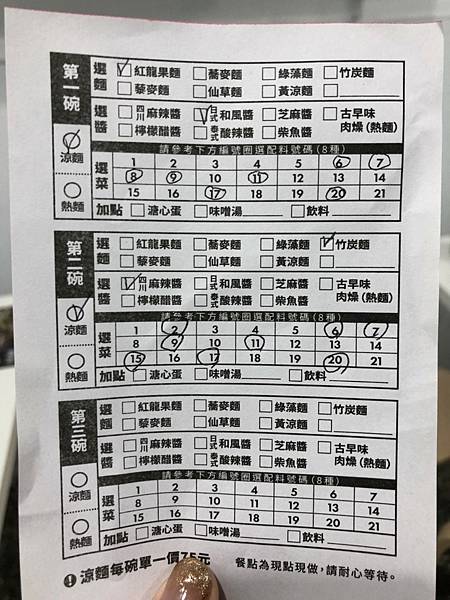 第一碗
涼麵
熱麵
選麵 紅龍果麵 蕎麥麵 綠藻麵 竹炭麵
藜麥麵 仙草麵 黃涼麵
選醬 四川麻辣醬 日式和風醬 芝麻醬 古早味
檸檬醋醬 泰式酸辣醬 柴魚醬 肉燥(熱麵)
請參考下方編號圈選配料號碼(8種)
選菜 1 2 3 4 5 6 7
8 9 10 11 12 13 14
15 16 17 18 19 20 21
加點 溏心蛋 味噌湯 飲料
第二碗
涼麵
熱麵
選麵 紅龍果麵 蕎麥麵 綠藻麵 竹炭麵
藜麥麵 仙草麵 黃涼麵
選醬 四川麻辣醬 日式和風醬 芝麻醬 古早味
檸檬醋醬 泰式酸辣醬 柴魚醬 肉燥(熱麵)
請參考下方編號圈選配料號碼(8種)
選菜 1 2 3 4 5 6 7
8 9 10 11 12 13 14
15 16 17 18 19 20 21
加點 溏心蛋 味噌湯 飲料
第三碗
涼麵
熱麵
選麵 紅龍果麵 蕎麥麵 綠藻麵 竹炭麵
藜麥麵 仙草麵 黃涼麵
選醬 四川麻辣醬 日式和風醬 芝麻醬 古早味
檸檬醋醬 泰式酸辣醬 柴魚醬 肉燥(熱麵)
請參考下方編號圈選配料號碼(8種)
選菜 1 2 3 4 5 6 7
8 9 10 11 12 13 14
15 16 17 18 19 20 21
加點 溏心蛋 味噌湯 飲料
涼麵每碗單一價75元 餐點為現點現做,請耐心等待。